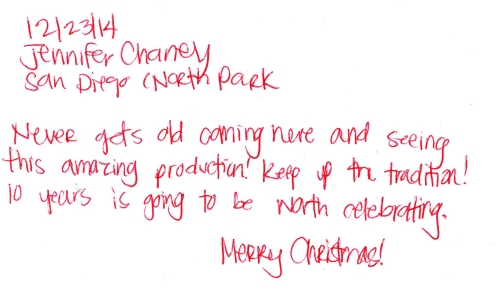 12/23/14
Jennifer Chaney
San Diego (North Park
Never gets old coming here and seeing
this amazing production! Keep up the tradition!
10 years is going to be worth celebrating.
Merry Christmas!